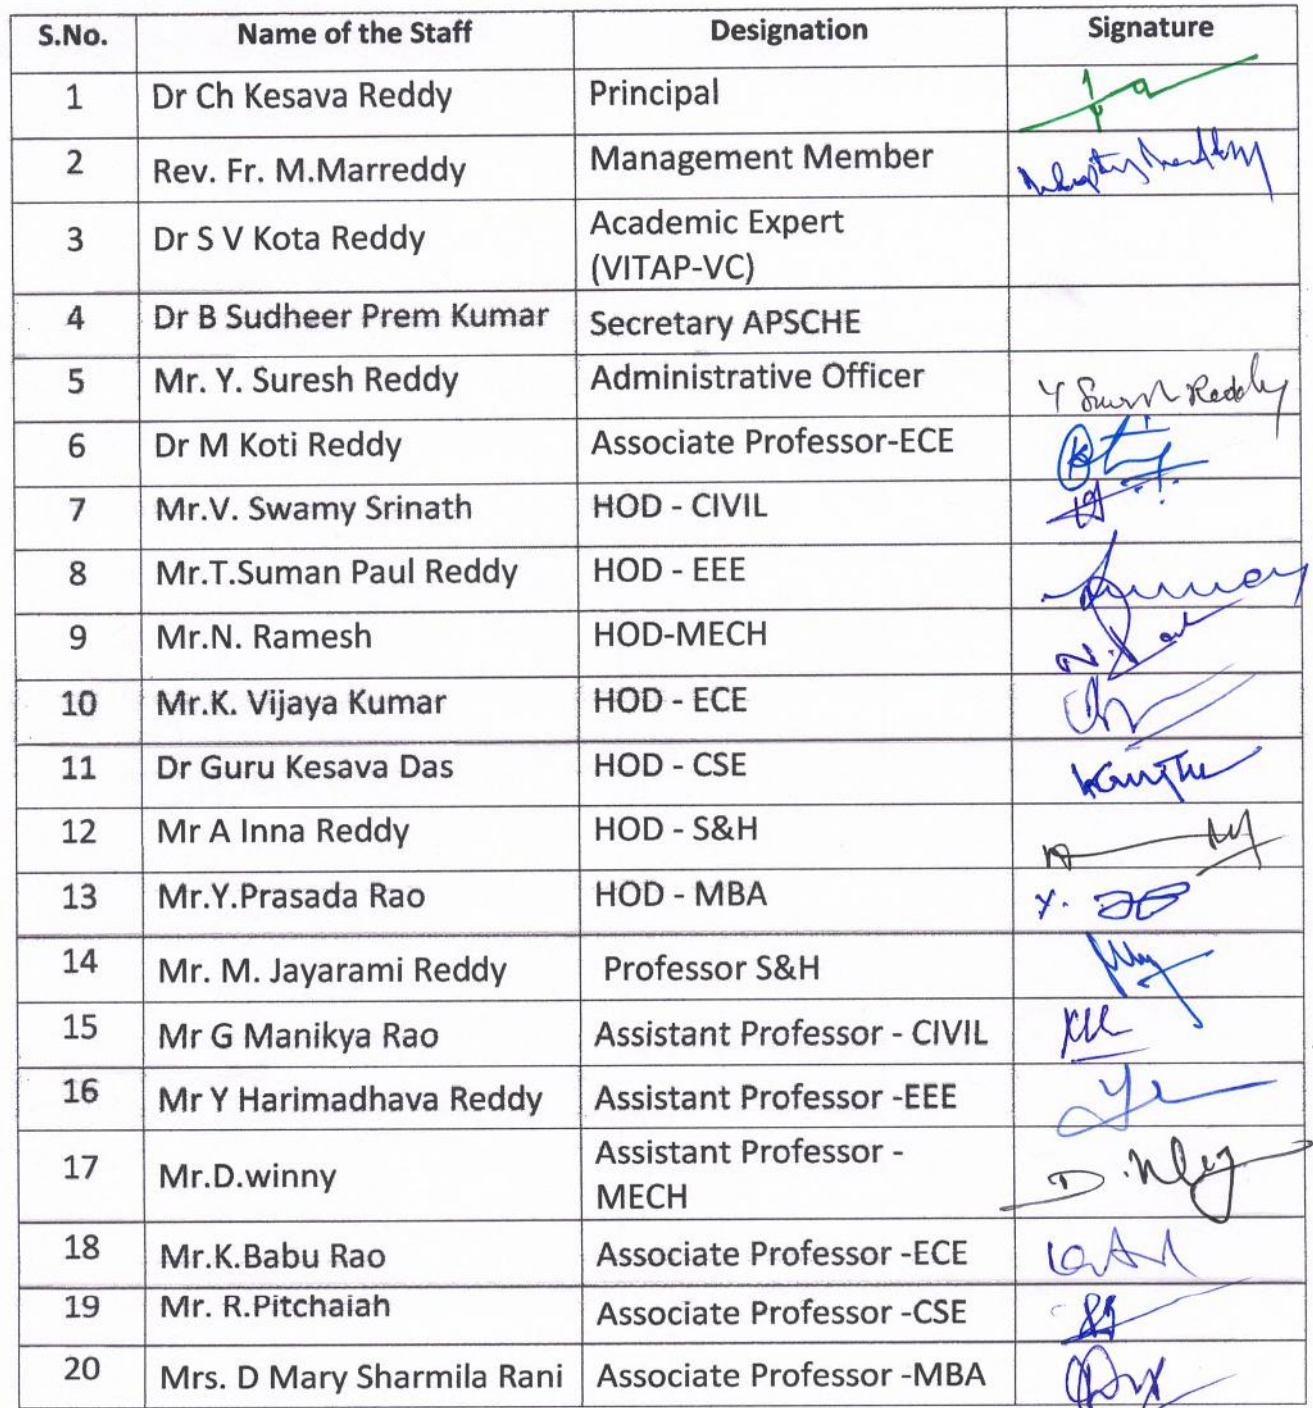 S.No. Name of the Staff Designation Signature
1 Dr Ch Kesava Reddy Principal
2 Rev. Fr. M.Marreddy Management Member
3 Dr S V Kota Reddy Academic Expert
(VITAP-VC)
4 Dr B Sudheer Prem Kumar Secretary APSCHE
5 Mr. Y. Suresh Reddy Administrative Officer Y Suresh Reddy
6 Dr M Koti Reddy Associate Professor-ECE
7 Mr.V. Swamy Srinath HOD - CIVIL
8 Mr.T.Suman Paul Reddy HOD - EEE
9 Mr.N. Ramesh HOD-MECH
10 Mr.K. Vijaya Kumar HOD - ECE
11 Dr Guru Kesava Das HOD - CSE
12 Mr A Inna Reddy HOD - S&H
13 Mr.Y.Prasada Rao HOD - MBA
14 Mr. M. Jayarami Reddy Professor S&H
15 Mr G Manikya Rao Assistant Professor - CIVIL
16 Mr Y Harimadhava Reddy Assistant Professor -EEE
17 Mr.D.winny Assistant Professor -
MECH
18 Mr.K.Babu Rao Associate Professor -ECE
19 Mr. R.Pitchaiah Associate Professor -CSE
20 Mrs. D Mary Sharmila Rani Associate Professor -MBA